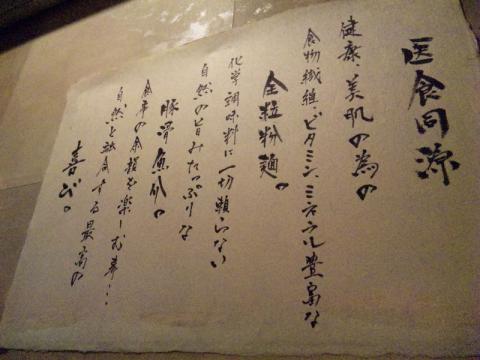 医食同源
健康、美肌の為の
食物繊維・ビタミン、ミネラル豊富な
全粒粉麺。
化学調味料に一切頼らない
自然の旨みたっぷりな
豚骨魚介。
食事の余韻を楽しむ事…
自然と融合する最高の
喜び。